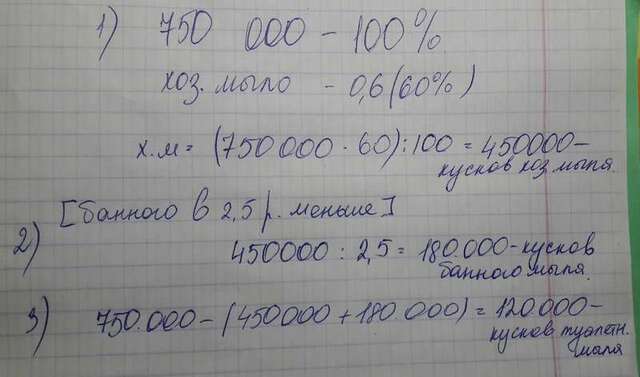 1) 750 000 - 100%
хоз. мыло - 0,6 (60%)
х.м = (750 000 · 60) : 100 = 450000 -
кусков хоз мыла.
[банного в 2,5 р. меньше]
2) 450000 : 2,5 = 180.000 - кусков
банного мыла.
3) 750.000 - (450000 + 180 000) = 120.000 -
кусков туалетн.
мыла